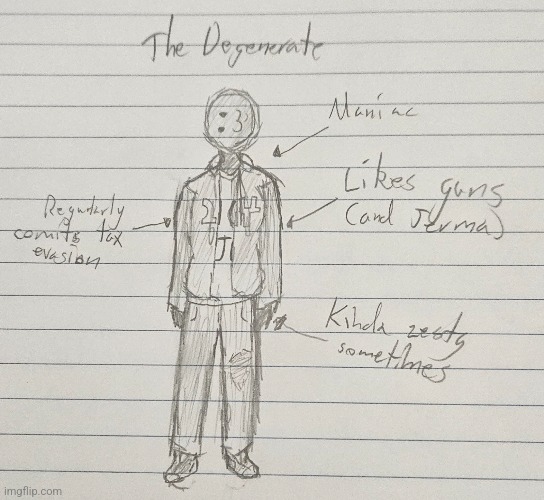 The Degenerate
Maniac
Likes guns
(and Jerma)
Regularly
comits tax
evasion
Kinda zesty
sometimes
imgflip.com